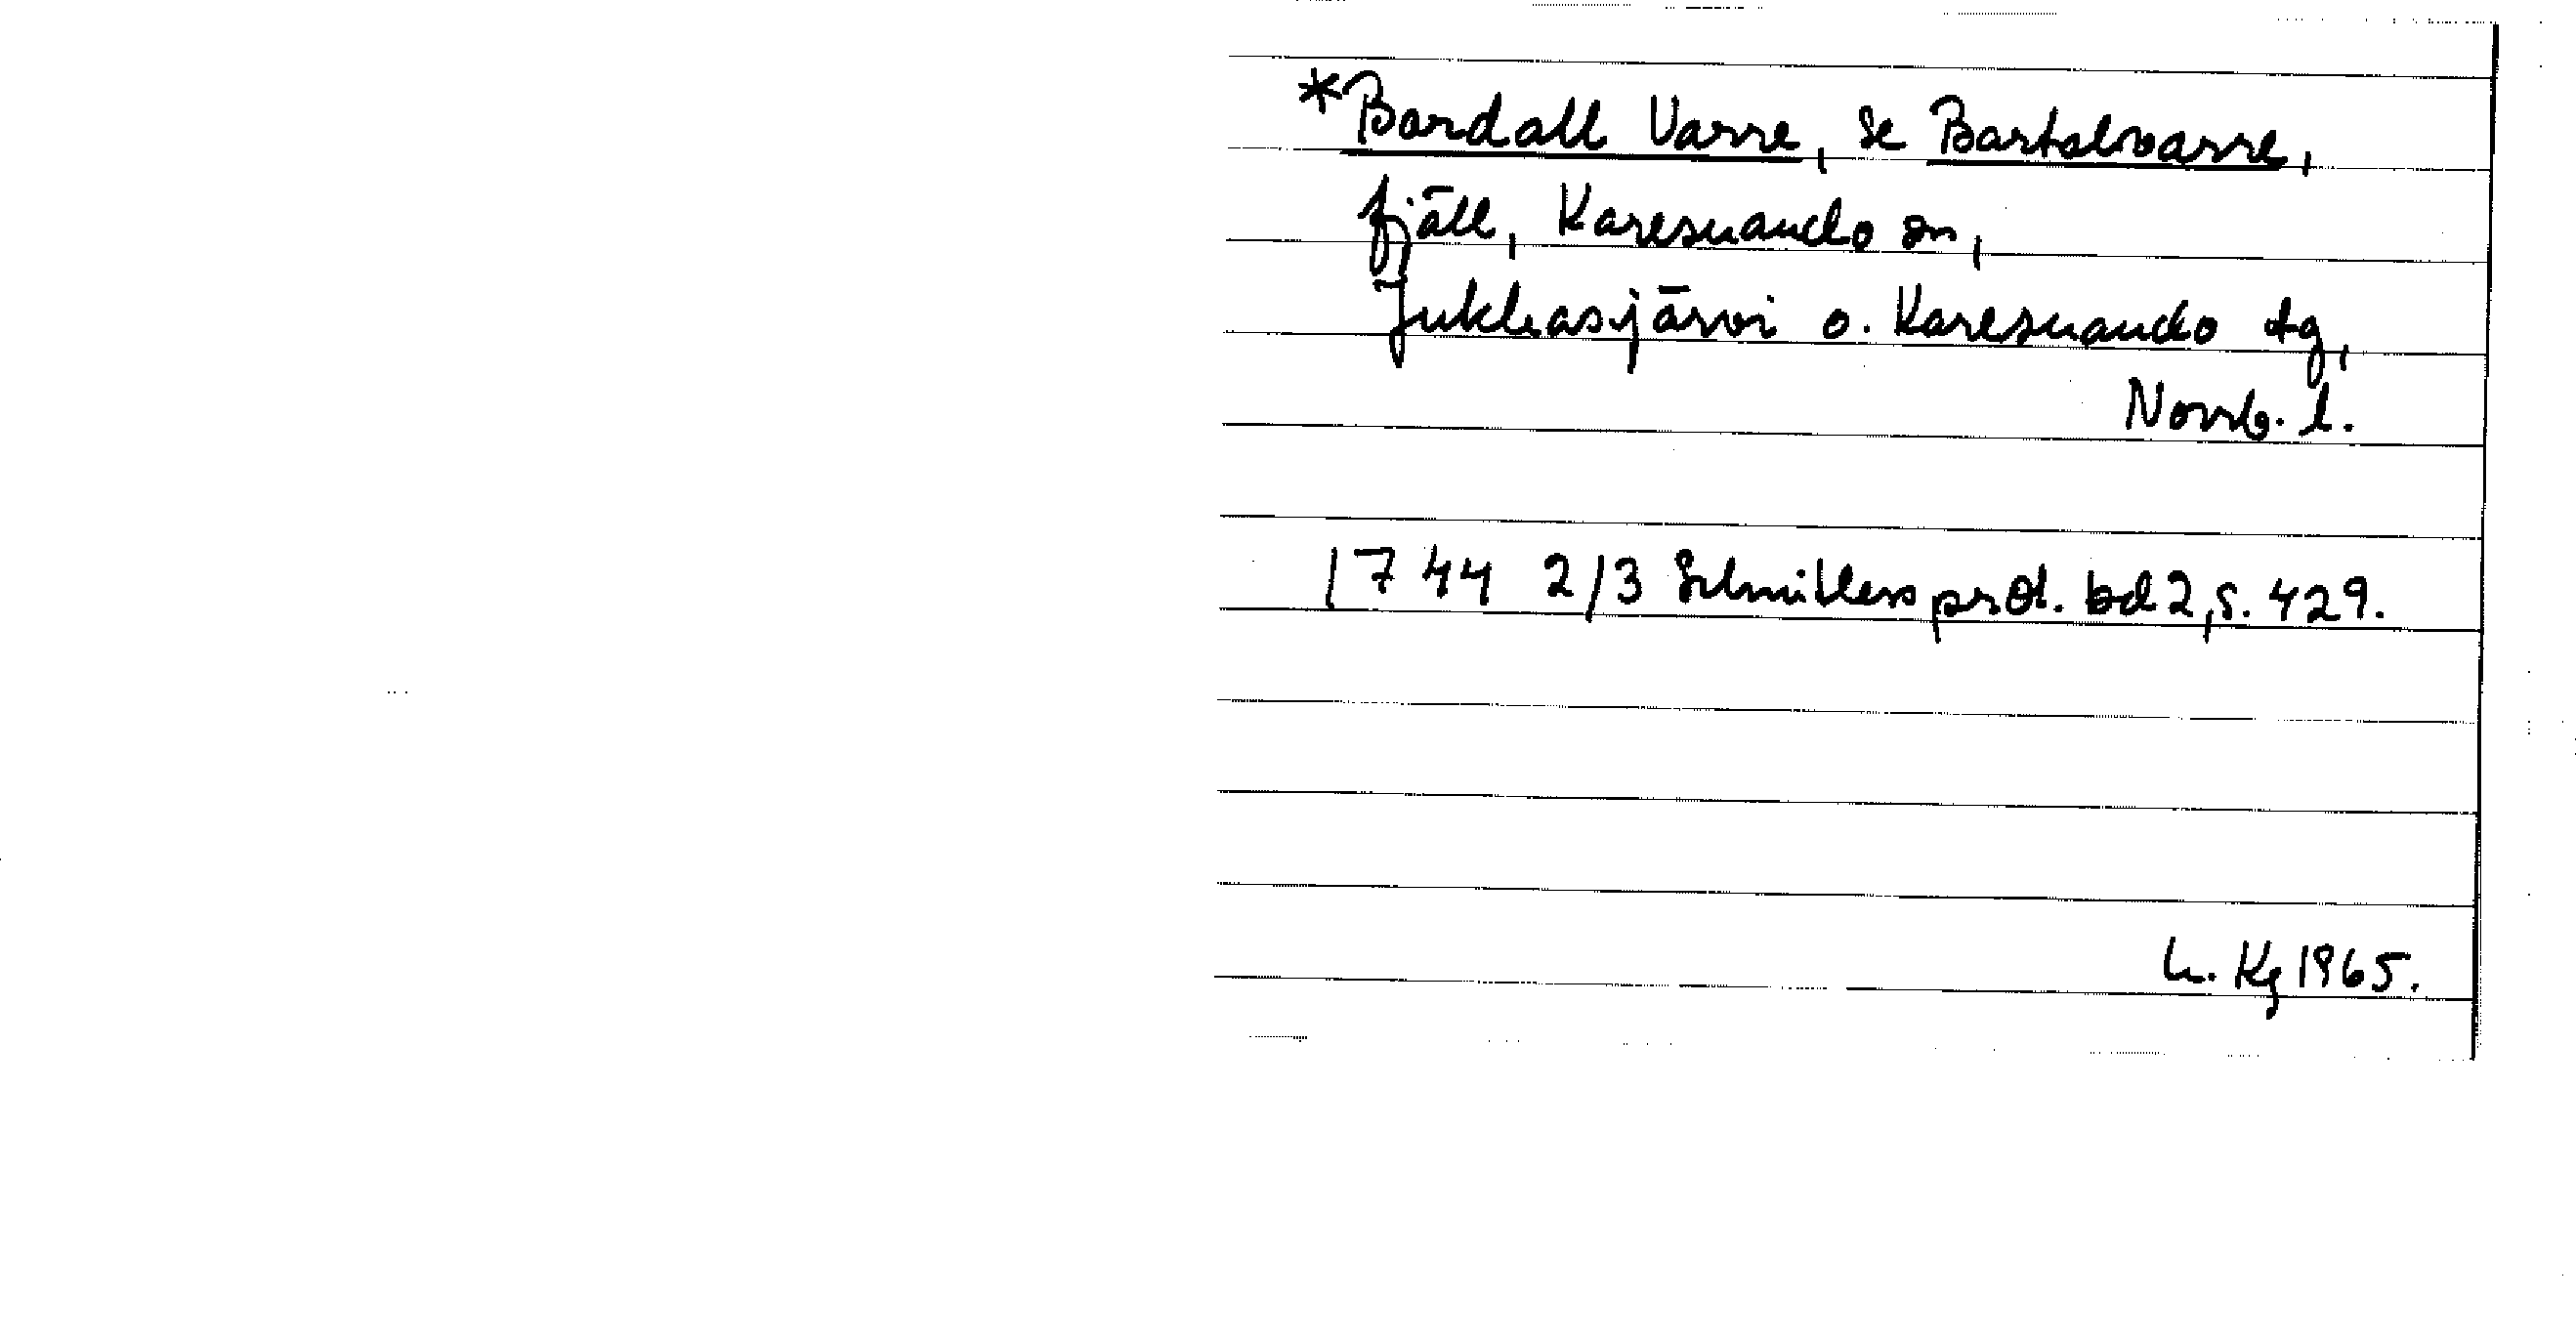 *Bardall Varre, se Bartalvarre,
fjäll, Karesuando sn,
Jukkasjärvi o. Karesuando tg,
Norrb. l.
1744 2/3 Schnitlers prot. bd 2, s. 429.
L. Kg 1965.